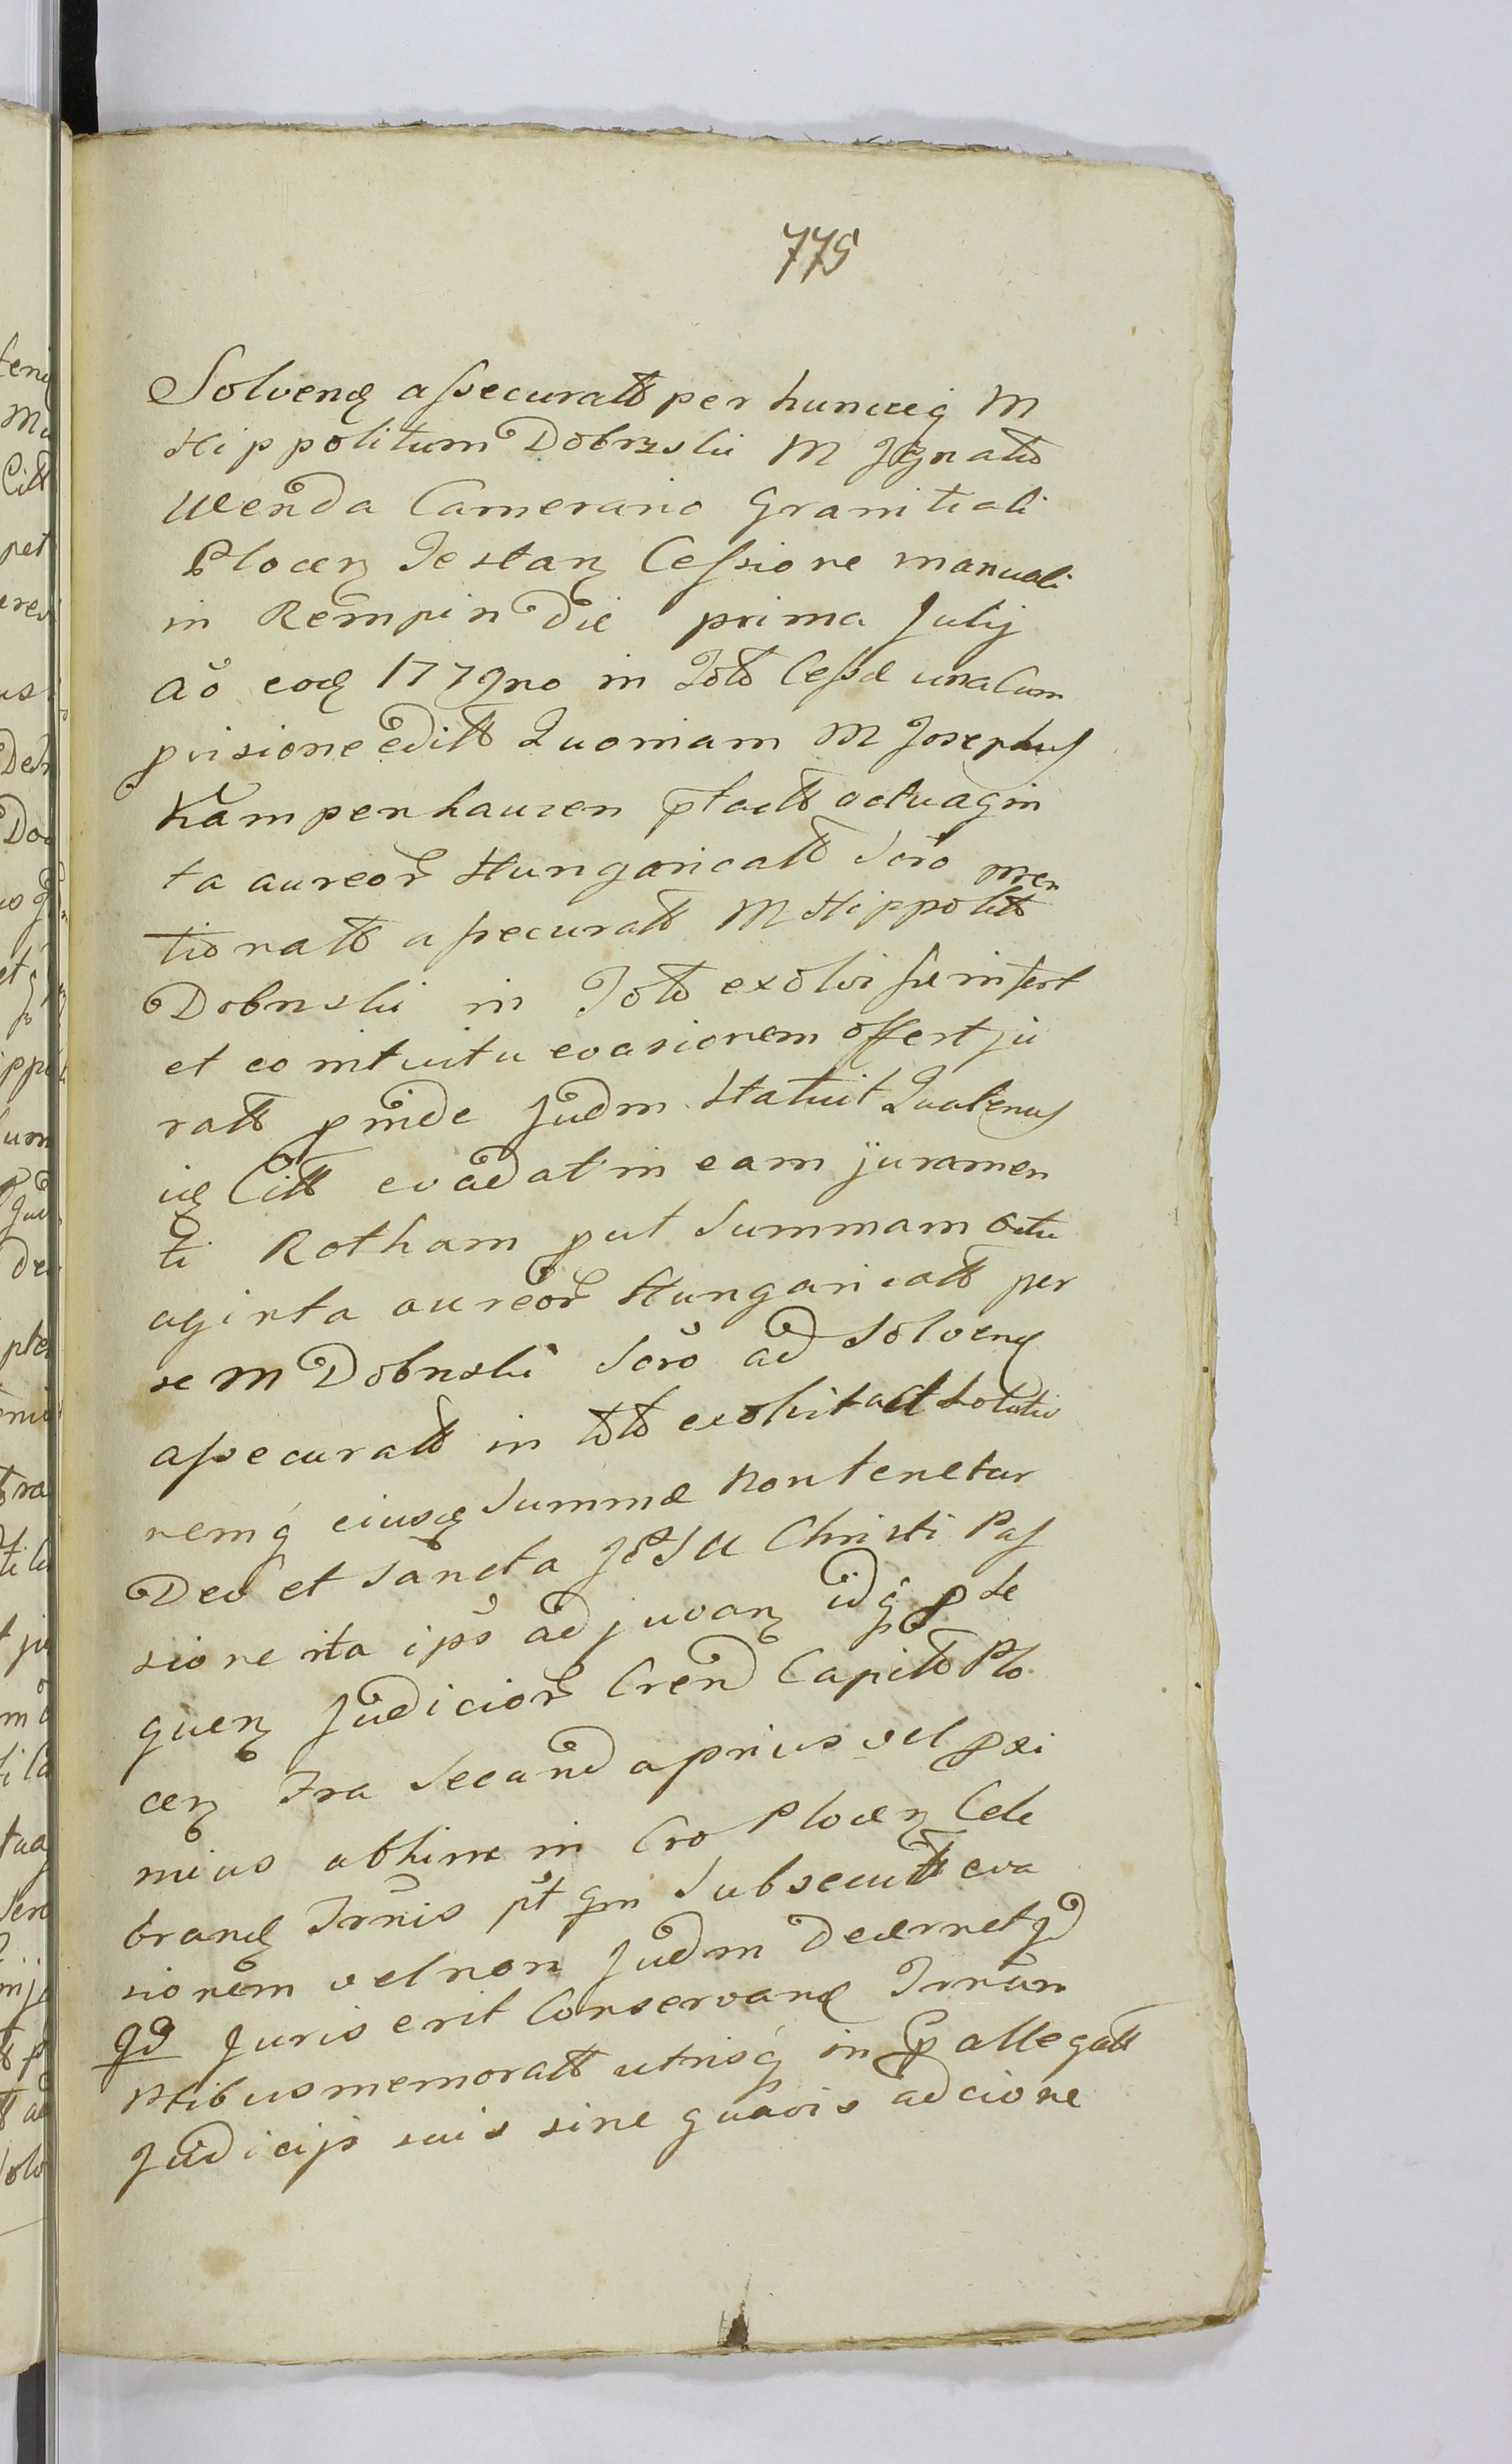 775
Solvend assecuratt per huncceq M
Hippolitum Dobrzski M Ignatio
Wenda Camerario Granitiali
Plocen Testan Cessione manuali
in Rempin die prima Julij
Aŏ eod 1779no in Toto Cessa una Cum
pvisione editt Quoniam M Josephus
Kampenhauzen ptactt octuagin
ta aureor Hungaricatt Scro men
tionatt assecuratt M Hippolitt
Dobrzski in Toto exolvisse infert
et eo intuitu evasionem offert ju
ratt pinde Judm Statuit Quatenus
id Citt evadat in eam juramen
ti Rotham put Summam octu
aginta aureor Hungaricatt per
se M Dobrzski Scro ad Solvend
assecuratt in toto exolvit ad Solutio
nemq eiusd Summæ non tenetur
Deo et Sancta JESU Christi Pas
sione ita ipso adjuvan idq p se
quen Judicior Crend Capitt Plo
cen Tra Secunda prius vel pxi
mius abhinc in Cro Plocen Cele
brand Trnis pt qm Subsecutt eva
sionem vel non Judm Decernet id
qd Juris erit Conservand Trnum
Ptibus memoratt utrisq in pallegatt
Judicijs suis sine quavis adcione